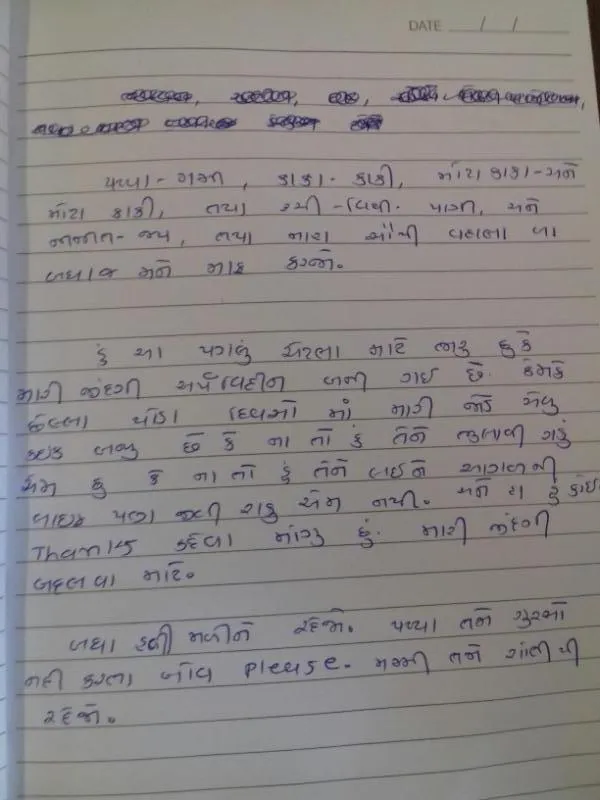 DATE / /
પપ્પા - મમ્મી, કાકા - કાકી, મોટા કાકા - અને
મોટા કાકી, તથા રવી - વિધી પાર્થી, અને
જય, તથા મારા સૌથી વહાલા બા
બધા જ મને માફ કરજો.
હું આ પગલું એટલા માટે ભરુ છુ કે
મારી જીંદગી અર્થવિહીન બની ગઇ છે. કેમકે
છેલ્લા થોડા દિવસો માં મારી જોડે એવુ
કઇક બન્યુ છે કે ના તો હું તેને ભુલાવી શકું
એમ છુ કે ના તો હું તેને લઇને આગળની
લાઇફ પણ જીવી શકુ એમ નથી. અને હા હું કોઇ
Thanks કહેવા માંગુ છું. મારી જીંદગી
બદલવા માટે.
બધા હળી મળીને રહેજો. પપ્પા તમે ગુસ્સો
નહી કરતા હોવ please. મમ્મી તમે શાંતી થી
રહેજો.